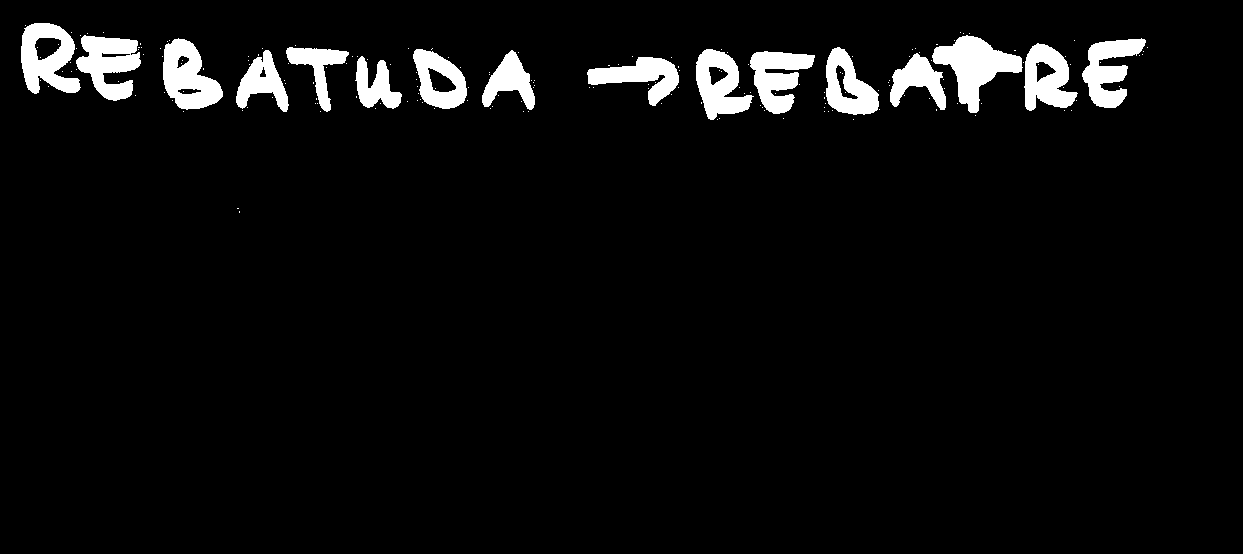 REBATUDA → REBATRE